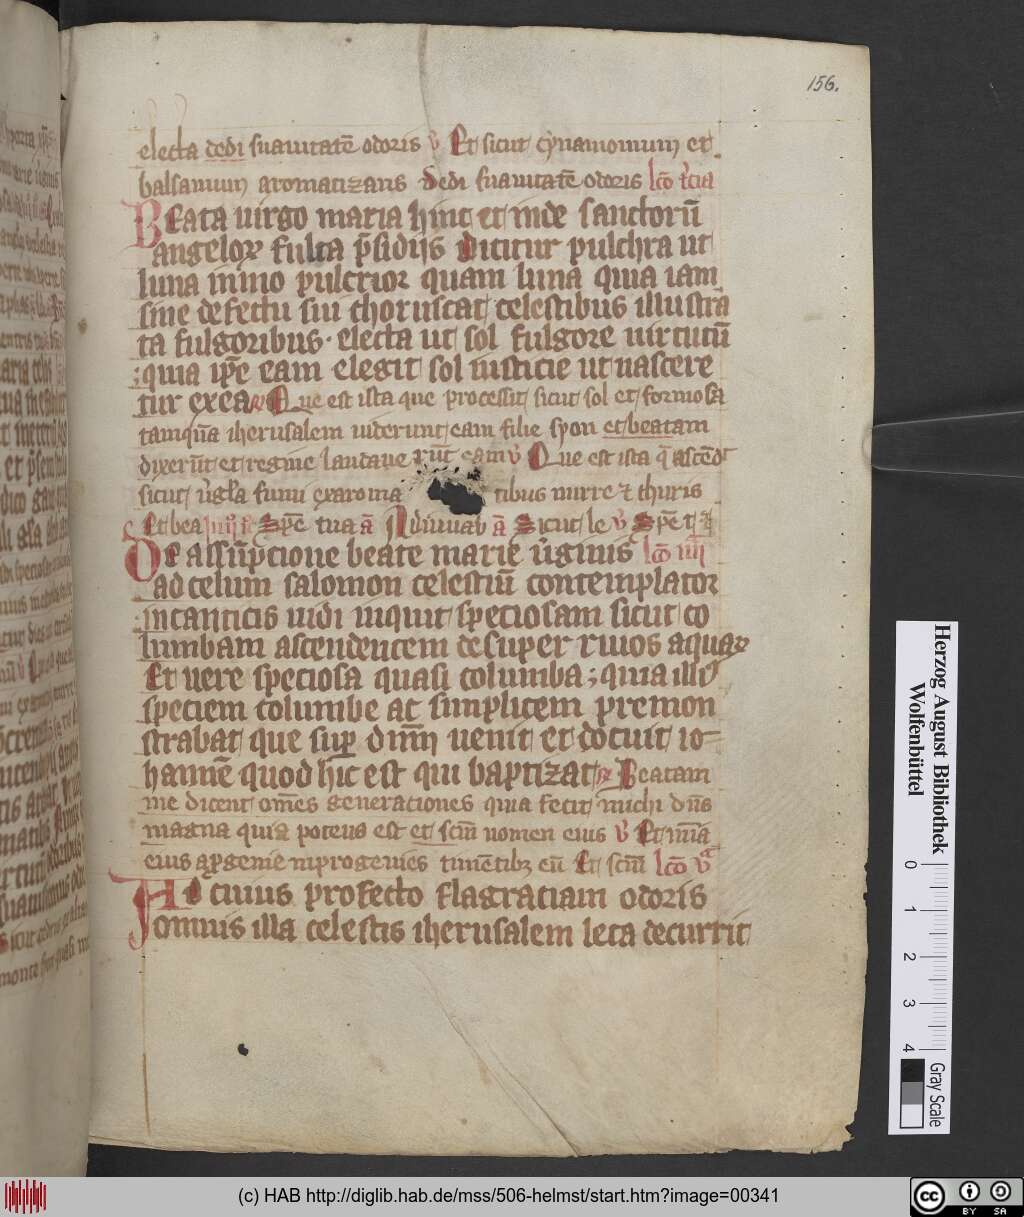 156.
electa dedi suauitatē odoris v̄ Et sicut cynamomum et
balsamum aromatizans dedi suauitatē odoris lc̄o t̄cia
Beata uirgo maria hinc et inde sanctorū
angeloꝝ fulta p̄sidijs dicitur pulchra ut
luna immo pulcrior quam luna quia iam
sine defectu sui choruscat celestibus illustra
ta fulgoribus· electa ut sol fulgore uirtutū
quia ip̄e eam elegit sol iusticie ut nascere
tur ex ea ℟ Que est ista que processit sicut sol et formosa
tamqͣm iherusalem uiderunt eam filie syon et beatam
dixerūt et regine laudaue rūt eam v̄ Que est ista q̄ ascēdit
sicut v̄gl̄a fumi ex aroma tibus mirre ⁊ thuris
Et bea Spē tua ā Adiuuab ā Sicut le v̄ Spē t
De assūpcione beate marie v̄ginis lc̄o iiii
ad celum salomon celestiū contemplator
in canticis uidi inquit speciosam sicut co
lumbam ascendentem desuper riuos aquaꝝ
Et uere speciosa quasi columba; quia illi
speciem columbe ac simplicem premon
strabat que sup̄ dm̄m uenit et docuit io
hannē quod hic est qui baptizat ℟ Beatam
me dicent om̄es generationes quia fecit michi dn̄s
magna quia potens est et sc̄m nomen eius v̄ Et mīa
eius a p̱genie in progenies timētibꝫ eū Et sc̄m lc̄o v̄ͣ
Ad cuius profecto flagraciam odoris
omnis illa celestis iherusalem leta decurrit
Herzog August Bibliothek
Wolfenbüttel
0 1 2 3 4
Gray Scale
(c) HAB http://diglib.hab.de/mss/506-helmst/start.htm?image=00341
cc BY SA